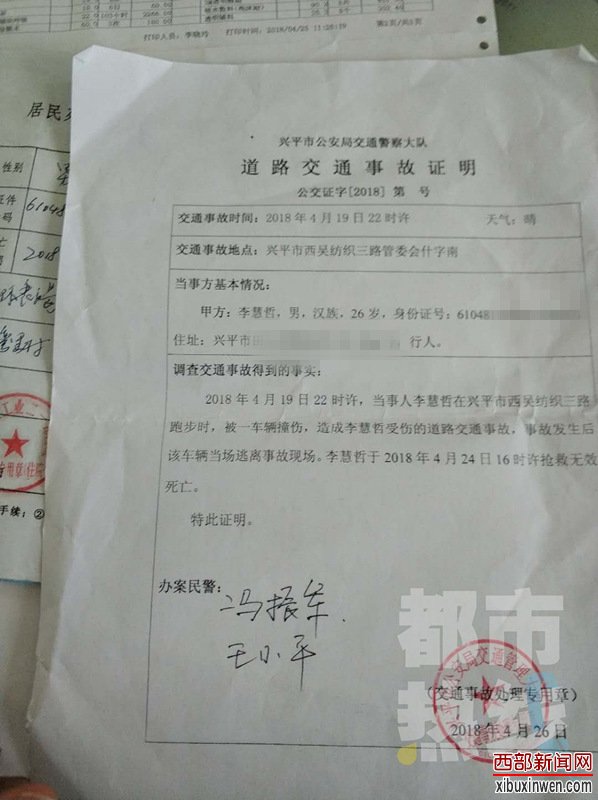 打印人员：李晓玲 打印时间：2018/04/25 11:26:19
居民
性别
61048
2018
兴平市公安局交通警察大队
道路交通事故证明
公交证字[2018] 第 号
交通事故时间：2018 年 4 月 19 日 22 时许 天气：晴
交通事故地点：兴平市西吴纺织三路管委会什字南
当事方基本情况：
甲方：李慧哲，男，汉族，26 岁，身份证号：61048
住址：兴平市 行人。
调查交通事故得到的事实：
2018 年 4 月 19 日 22 时许，当事人李慧哲在兴平市西吴纺织三路
跑步时，被一车辆撞伤，造成李慧哲受伤的道路交通事故，事故发生后
该车辆当场逃离事故现场。李慧哲于 2018 年 4 月 24 日 16 时许抢救无效
死亡。
特此证明。
办案民警：
冯振军
王小平
都市
热线
（交通事故处理专用章）
2018 年 4 月 26 日
手续：②
西部新闻网
xibuxinwen.com